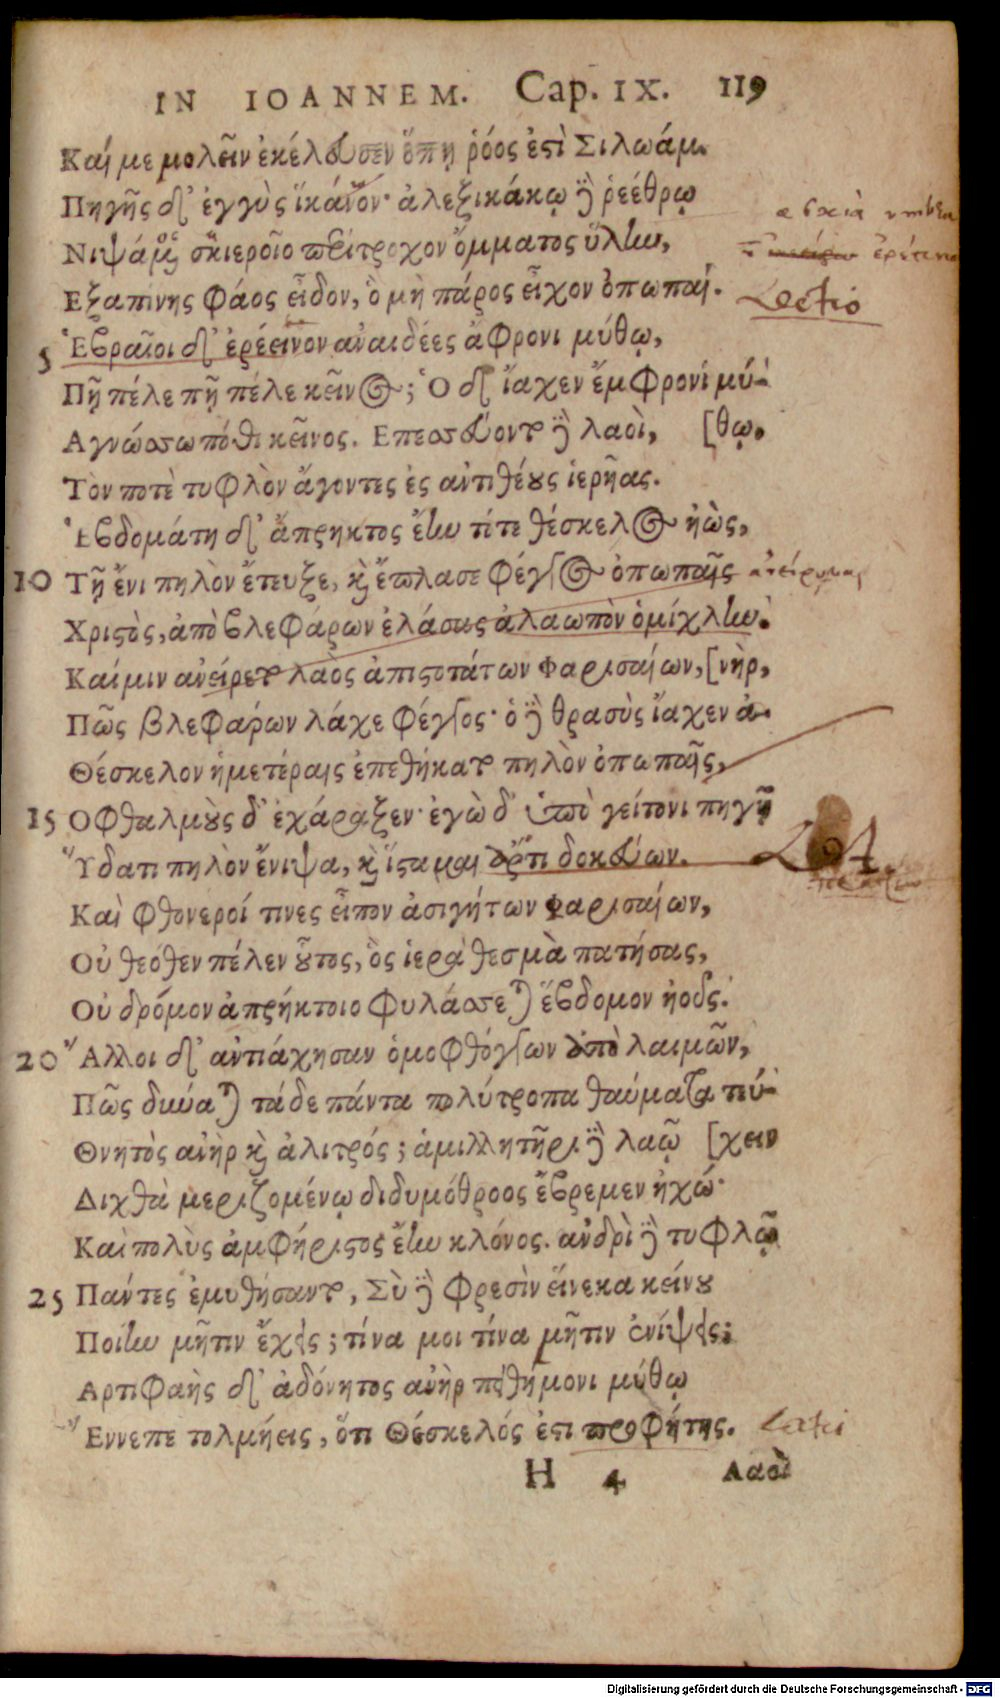 IN IOANNEM. Cap. IX. 119
Καί με μολεῖν ἐκέλευσεν ὅπη ῥόος ἐστὶ Σιλωάμ.
Πηγῆς δ' ἐγγὺς ἵκανον· ἀλεξικάκῳ δὲ ῥεέθρῳ
Νιψάμενος σκιεροῖο περίτροχον ὄμματος ὕλην,
Εξαπίνης φάος εἶδον, ὃ μὴ πάρος εἶχον ὀπωπαί.
Lectio
5 Ἑβραῖοι δ' ἐρέεινον ἀναιδέες ἄφρονι μύθῳ,
Πῆ πέλε πῆ πέλε κεῖνος; Ὁ δ' ἴαχεν ἔμφρονι μύ-
Αγνώσσω πόθι κεῖνος. Επεσσεύοντο δὲ λαοὶ, [θῳ,
Τὸν ποτὲ τυφλὸν ἄγοντες ἐς ἀντιθέους ἱερῆας.
Ἑβδομάτη δ' ἄπρηκτος ἔην τίτε θέσκελος ἠὼς,
10 Τῇ ἔνι πηλὸν ἔτευξε, καὶ ἔπλασε φέγγος ὀπωπαῖς
Χριστὸς, ἀπὸ βλεφάρων ἐλάσας ἀλαωπὸν ὁμίχλην.
Καί μιν ἀνείρετο λαὸς ἀπιστοτάτων Φαρισαίων, [νὴρ,
Πῶς βλεφάρων λάχε φέγγος· ὁ δὲ θρασὺς ἴαχεν ἀ-
Θέσκελον ἡμετέραις ἐπεθήκατο πηλὸν ὀπωπαῖς,
15 Οφθαλμοὺς δ' ἐχάραξεν· ἐγὼ δ' ὑπὸ γείτονι πηγῇ
Ὕδατι πηλὸν ἔνιψα, καὶ ἵσταμαι ἄρτι δοκεύων.
Καὶ φθονεροί τινες εἶπον ἀσιγήτων Φαρισαίων,
Οὐ θεόθεν πέλεν οὗτος, ὃς ἱερὰ θεσμὰ πατήσας,
Οὐ δρόμον ἀπρήκτοιο φυλάσσεται ἕβδομον ἠοῦς.
20 Ἄλλοι δ' ἀντιάχησαν ὁμοφθόγγων ἀπὸ λαιμῶν,
Πῶς δύναται τάδε πάντα πολύτροπα θαύματα τεύ-
Θνητὸς ἀνὴρ καὶ ἀλιτρός; ἁμιλλητῆρι δὲ λαῷ [χειν
Διχθὰ μεριζομένῳ διδυμόθροος ἔβρεμεν ἠχώ·
Καὶ πολὺς ἀμφήριστος ἔην κλόνος. ἀνδρὶ δὲ τυφλῷ
25 Πάντες ἐμυθήσαντο, Σὺ δὲ φρεσὶν εἵνεκα κείνου
Ποίην μῆτιν ἔχεις; τίνα μοι τίνα μῆτιν ἐνίψεις;
Αρτιφαὴς δ' ἀδόνητος ἀνὴρ πειθήμονι μύθῳ
Ἔννεπε τολμήεις, ὅτι Θέσκελός ἐστι προφήτης.
H 4 Λαοὶ
Digitalisierung gefördert durch die Deutsche Forschungsgemeinschaft - DFG